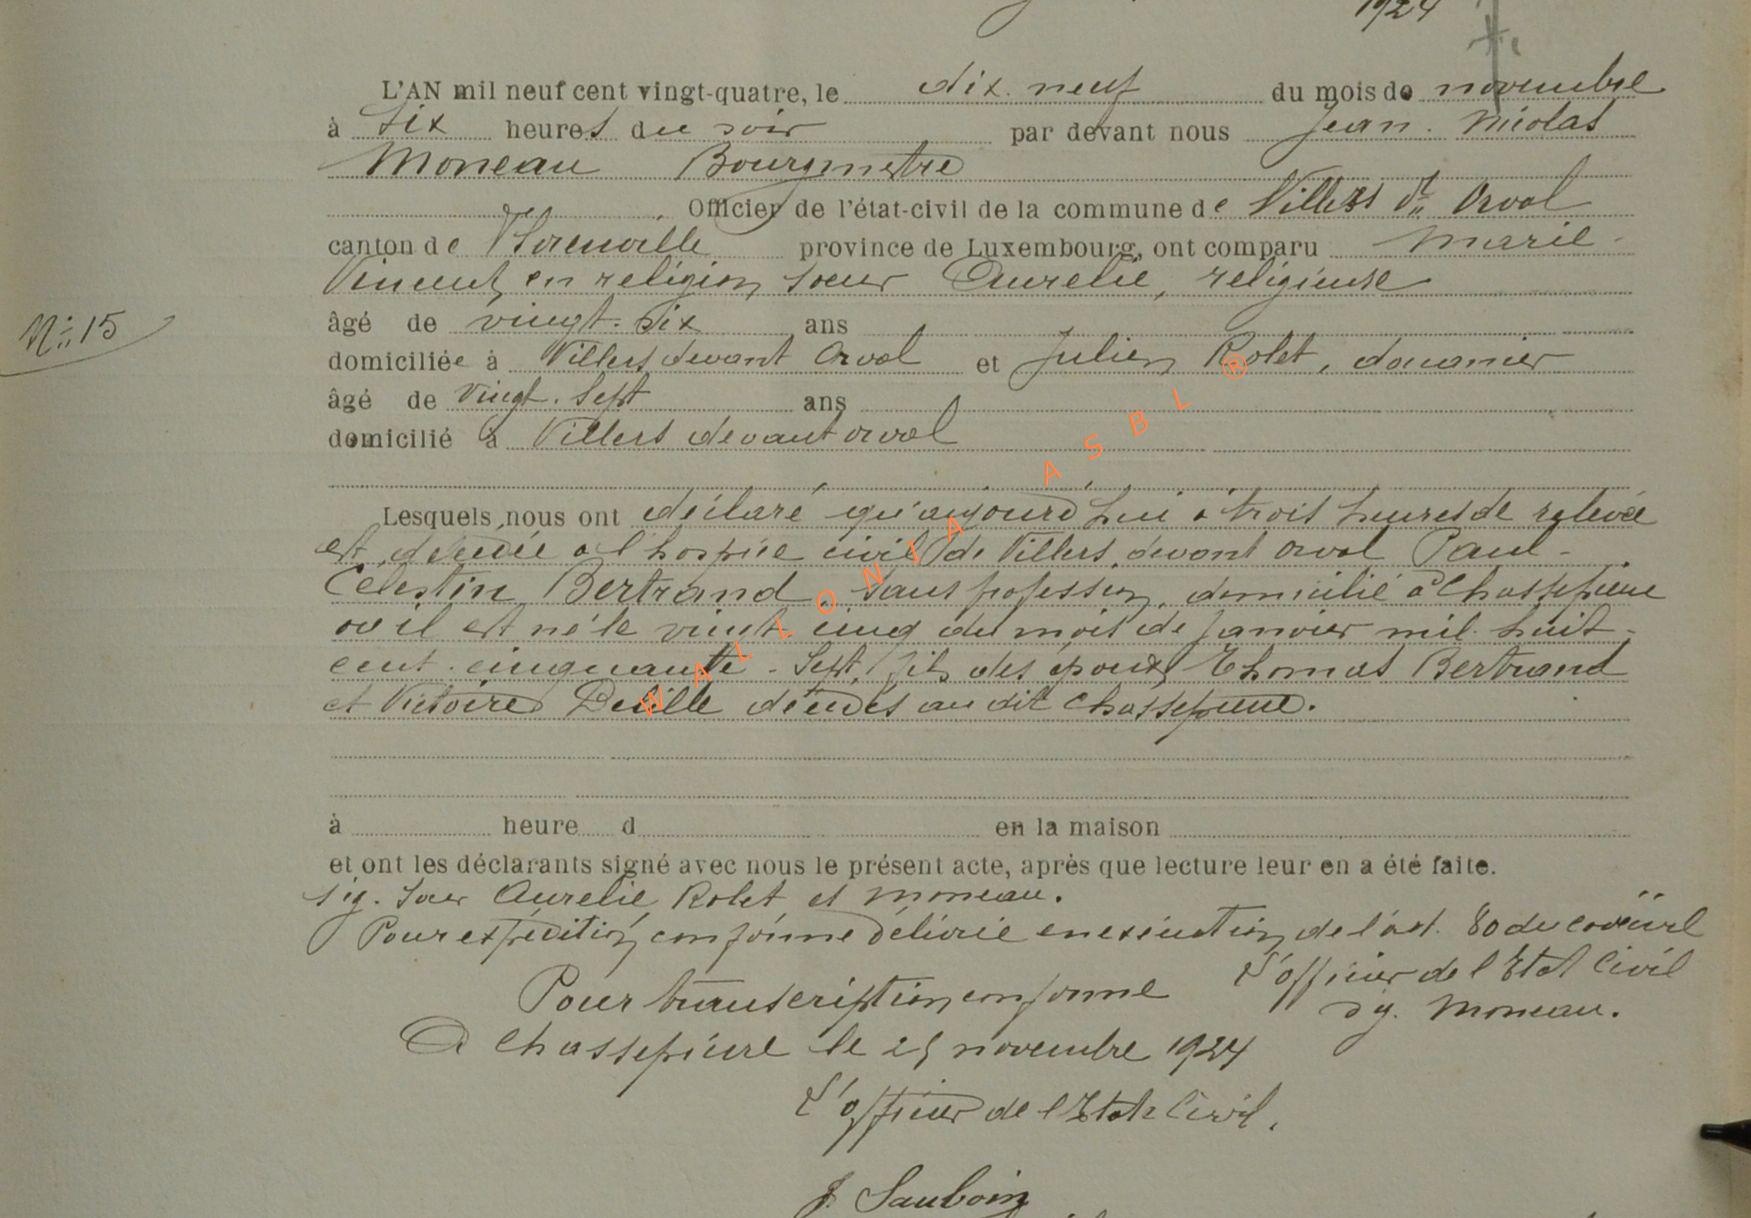 1924
L'AN mil neuf cent vingt-quatre, le dix. neuf du mois de novembre
à six heures du soir par devant nous Jean. Nicolas
Moneau Bourgmestre
Officier de l'état-civil de la commune de Villers dt Orval
canton de Florenville province de Luxembourg, ont comparu Marie
Vincent, en religion soeur Aurelie, religieuse
âgé de vingt. six ans
N° 15
domiciliée à Villers devant Orval et Julien Rolet, douanier
âgé de vingt. sept ans
domicilié à Villers devant orval
Lesquels nous ont déclaré qu'aujourd'hui à trois heures de relevée
est décédé à l'hospice civil de Villers devant orval Paul-
Célestin Bertrand, sans profession, domicilié à Chassepierre
où il est né le vingt cinq du mois de Janvier mil. huit-
cent. cinquante - sept, fils des époux Thomas Bertrand
et Victoire décédés au dit Chassepierre.
à heure d en la maison
et ont les déclarants signé avec nous le présent acte, après que lecture leur en a été faite.
sig. soeur Aurelie, Rolet et Moneau.
Pour expédition conforme délivrée en exécution de l'art. 80 du code civil
L'officier de l'Etat Civil
Pour transcription conforme
sig. Moneau.
A Chassepierre le 25 novembre 1924
L'officier de l'Etat Civil,
J. Sauboin
WALLONIA ASBL ®